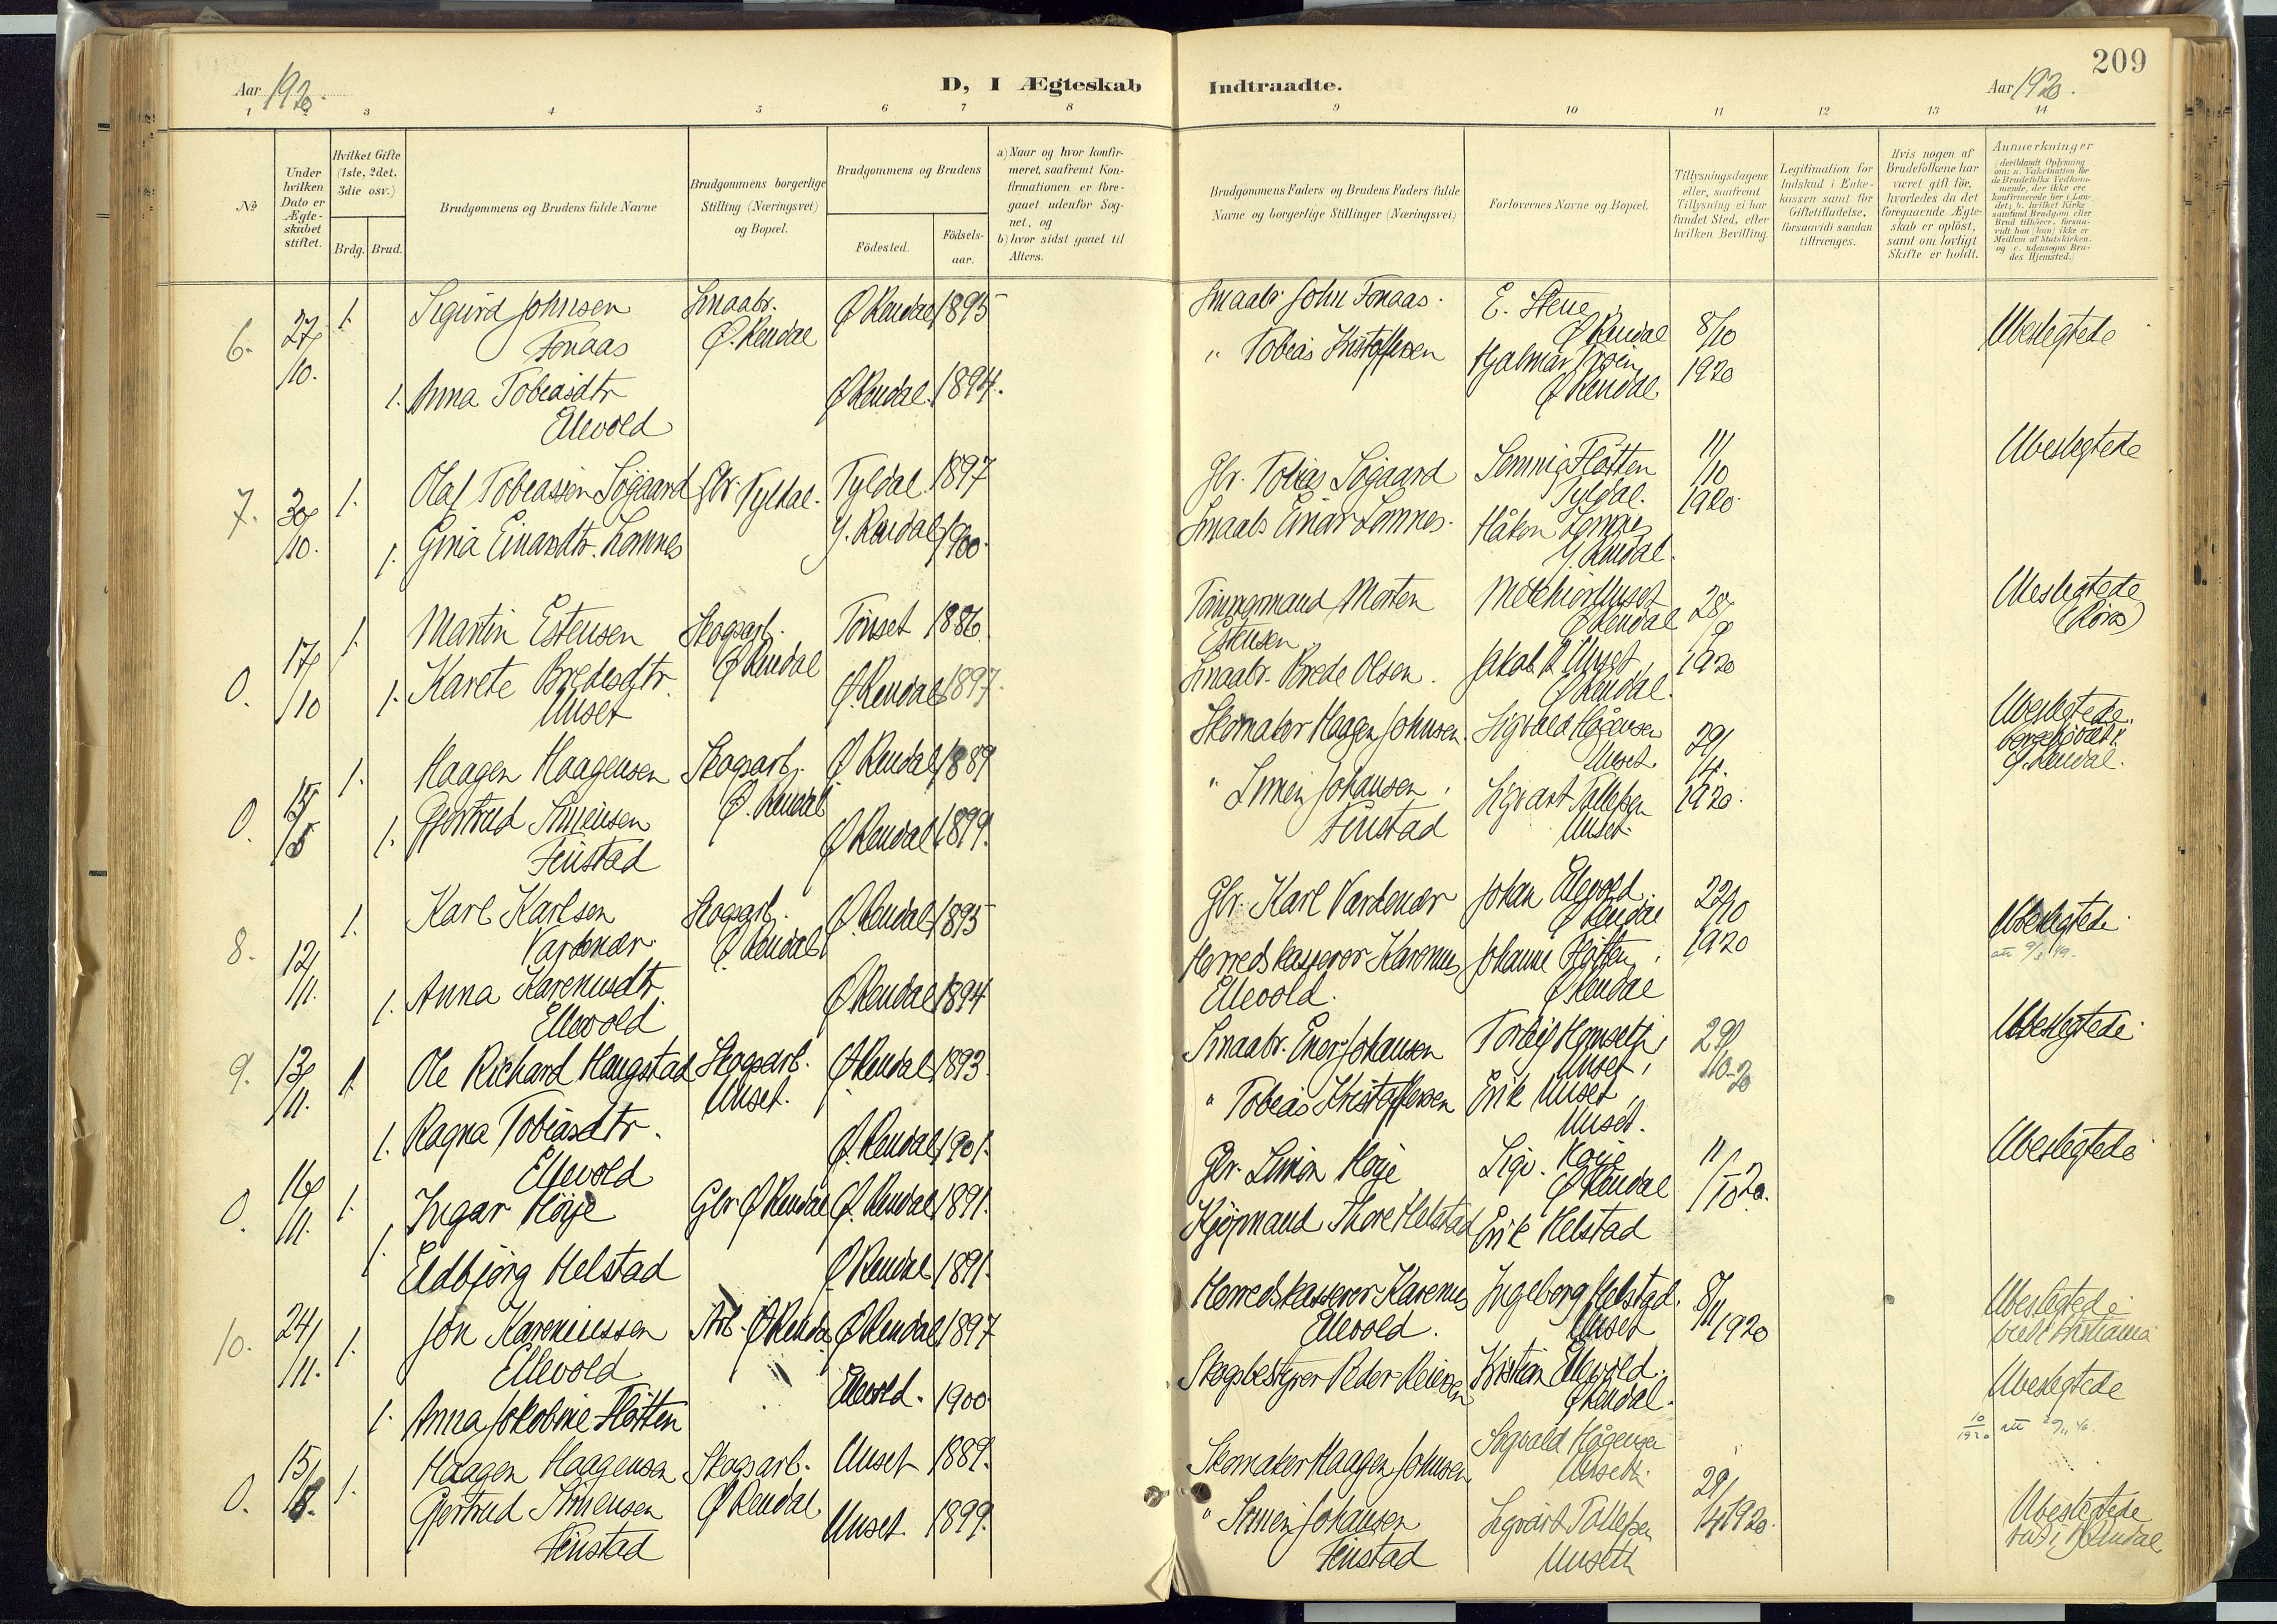 209
Aar 1920.
D, I Ægteskab Indtraadte.
Aar 1920.
1 2 3 4 5 6 7 8 9 10 11 12 13 14
№
Under hvilken Dato er Ægte-skabet stiftet.
Hvilket Gifte (1ste, 2det, 3die osv.)
Brdg. Brud.
Brudgommens og Brudens fulde Navne
Brudgommens borgerlige Stilling (Næringsvei) og Bopæl.
Brudgommens og Brudens
Födested.
Födsels-aar.
a) Naar og hvor konfir-
meret, saafremt Kon-
firmationen er fore-
gaaet udenfor Sog-
net, og
b) hvor sidst gaaet til
Alters.
Brudgommens Faders og Brudens Faders fulde
Navne og borgerlige Stillinger (Næringsvei)
Forlovernes Navne og Bopæl.
Tillysningsdagene
eller, saafremt
Tillysning ei har
fundet Sted, efter
hvilken Bevilling.
Legitimation for
Indskud i Enke-
kassen samt for
Giftetilladelse,
forsaavidt saadan
tiltrænges.
Hvis nogen af
Brudefolkene har
været gift för,
hvorledes da det
foregaaende Ægte-
skab er oplöst,
samt om lovligt
Skifte er holdt.
Anmerkninger
(deriblandt Oplysning
om: a. Vakcination for
de Brudefolks Vedkom-
mende, der ikke ere
konfirmerede her i Lan-
det; b. hvilket Kirke-
samfund Brudgom eller
Brud tilhörer, forsaa-
vidt han (hun) ikke er
Medlem af Statskirken.
og c. udensogns Bru-
des Hjemsted.)
6. 27/10. 1. Sigurd Johnsen Smaabr. Ø Rendal 1895 Smaabr John Fonaas. E. Stene 8/10 Ubeslegtede
Fonaas Ø. Rendal Ø Rendal
1. Anna Tobiasdtr Ø Rendal. 1894. " Tobias Kristoffersen Hjalmar 1920
Ellevold Ø Rendal.
7. 30/10. 1. Olaf Tobiassen Søgaard Gbr. Tyldal. Tyldal. 1897 Gbr. Tobias Søgaard Flötten 11/10 1920. Ubeslegtede
Tyldal.
1. Gina Einarsdtr. Lomnes Y. Rendal 1900. Smaabr Einar Lomnes. Håkon Lomnes
Y. Rendal.
0. 17/10 1. Martin Estensen Skogsarb. Tönset 1886. Morten Melchior Unset 28/9 Ubeslegtede
Ø Rendal Estensen Ø Rendal (Röros)
1. Karete Bredesdtr. Ø. Rendal 1897. Smaabr. Brede Olsen. Jakob Unset, 1920
Unset Ø Rendal.
0. 15/5 1. Haagen Haagensen Skogsarb. Ø Rendal 1889 Skomaker Haagen Johnsen. Sigvald Hågensen 29/4. Ubeslegtede.
Ø. Rendal Unset. Y. Rendal.
1. Gjertrud Simensen Ø Rendal 1899. " Simen Johansen, Sigvart Tollefsen 1920.
Finstad Finstad Unset.
8. 12/11. 1. Karl Karlsen Skogsarb. Ø. Rendal 1895 Gbr. Karl Vardenær Johan Ellevold. 22/10 Ubeslegtede.
Vardenær. Ø. Rendal Ø Rendal
1. Anna Karenusdtr. Ø Rendal 1894 Herredskasserer Karenus Johanne Flötten, 1920
Ellevold Ellevold. Ø. Rendal
9. 13/11. 1. Ole Richard Haugstad Skogsarb. Ø Rendal 1893. Smaabr. Johansen 29/10-20 Ubeslegtede.
Unset. Unset,
1. Ragna Tobiasdtr. Ø. Rendal 1901. " Tobias Kristoffersen Erik Unset,
Ellevold Unset.
0. 16/11. 1. Ingar Höije Gbr Ø Rendal Ø. Rendal 1891. Gbr. Simon Höije Sigv. Höije 11/10 20. Ubeslegtede
Ø Rendal
1. Eldbjörg Helstad Ø Rendal 1891. Kjöpmand Thore Helstad Erik Helstad
10. 24/11. 1. Jon Kareniussen Arb. Ø Rendal Ø Rendal 1897 Herredskasserer Karenus Ingeborg Helstad. 8/11 1920 Ubeslegtede
Ellevold Ellevold. Unset
1. Anna Jakobine Flötten Ellevold. 1900. Skogbestyrer Peder Reiersen Kristian Ellevold. Ubeslegtede
Ø Rendal.
0. 15/5. 1. Haagen Haagensen Skogsarb. Unset 1889. Skomaker Haagen Johnsen Sigvald Hågensen
Ø Rendal. Unset. 29/4 1920.
Gjertrud Simensen Unset. 1899. " Simen Johansen Sigvart Tollefsen Ubeslegtede
Finstad Finstad Unseth